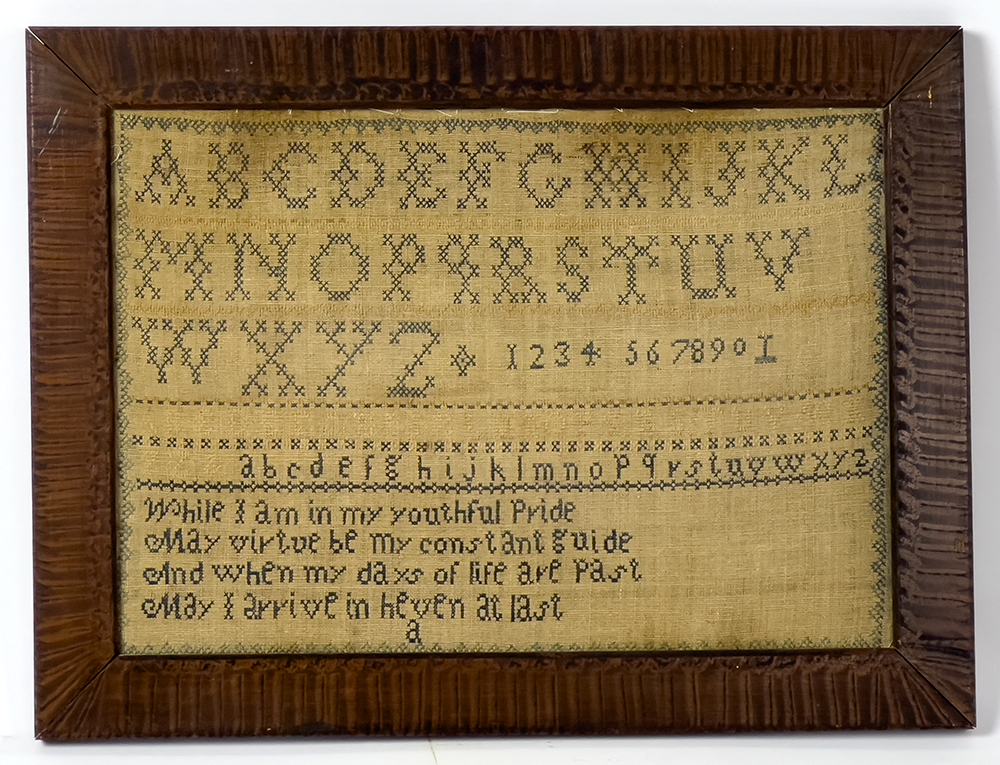 A B C D E F G H I J K L
M N O P Q R S T U V
W X Y Z 1 2 3 4 5 6 7 8 9 0 I
a b c d e f g h i j k l m n o p q r s t u v w x y z
While I am in my youthful Pride
May virtve be my constant guide
And when my days of life are Past
May I arrive in heven at last
a